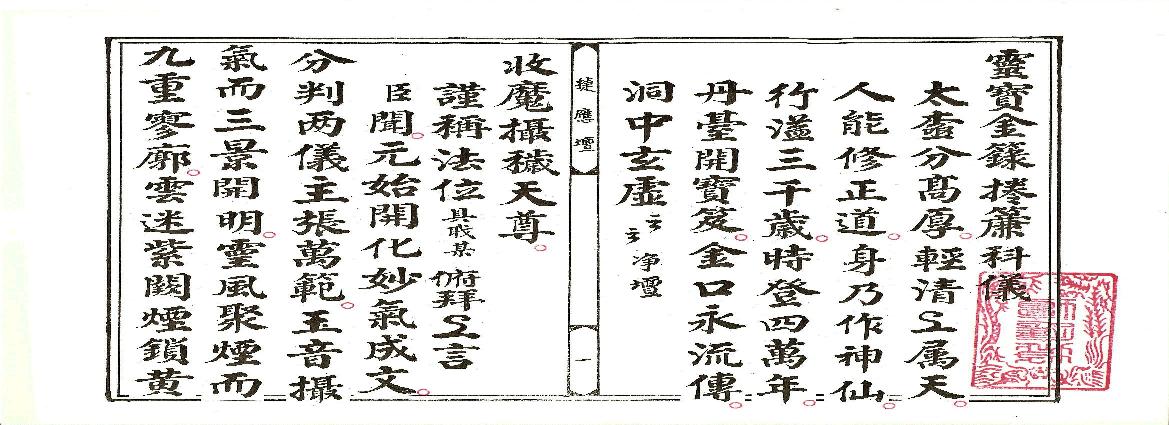 靈寶金籙捲簾科儀
太極分高厚。輕清上属天。
人能修正道。身乃作神仙。
行溢三千歲。時登四萬年。
丹臺開寶笈。金口永流傳。
洞中玄虛云云净壇
捷應壇
一
收魔攝穢天尊。
謹稱法位具職某俯拜上言
臣聞。元始開化妙氣成文。
分判两儀主張萬範。玉音攝
氣而三景開明。靈風聚煙而
九重寥廓。雲迷紫闕煙鎖黃